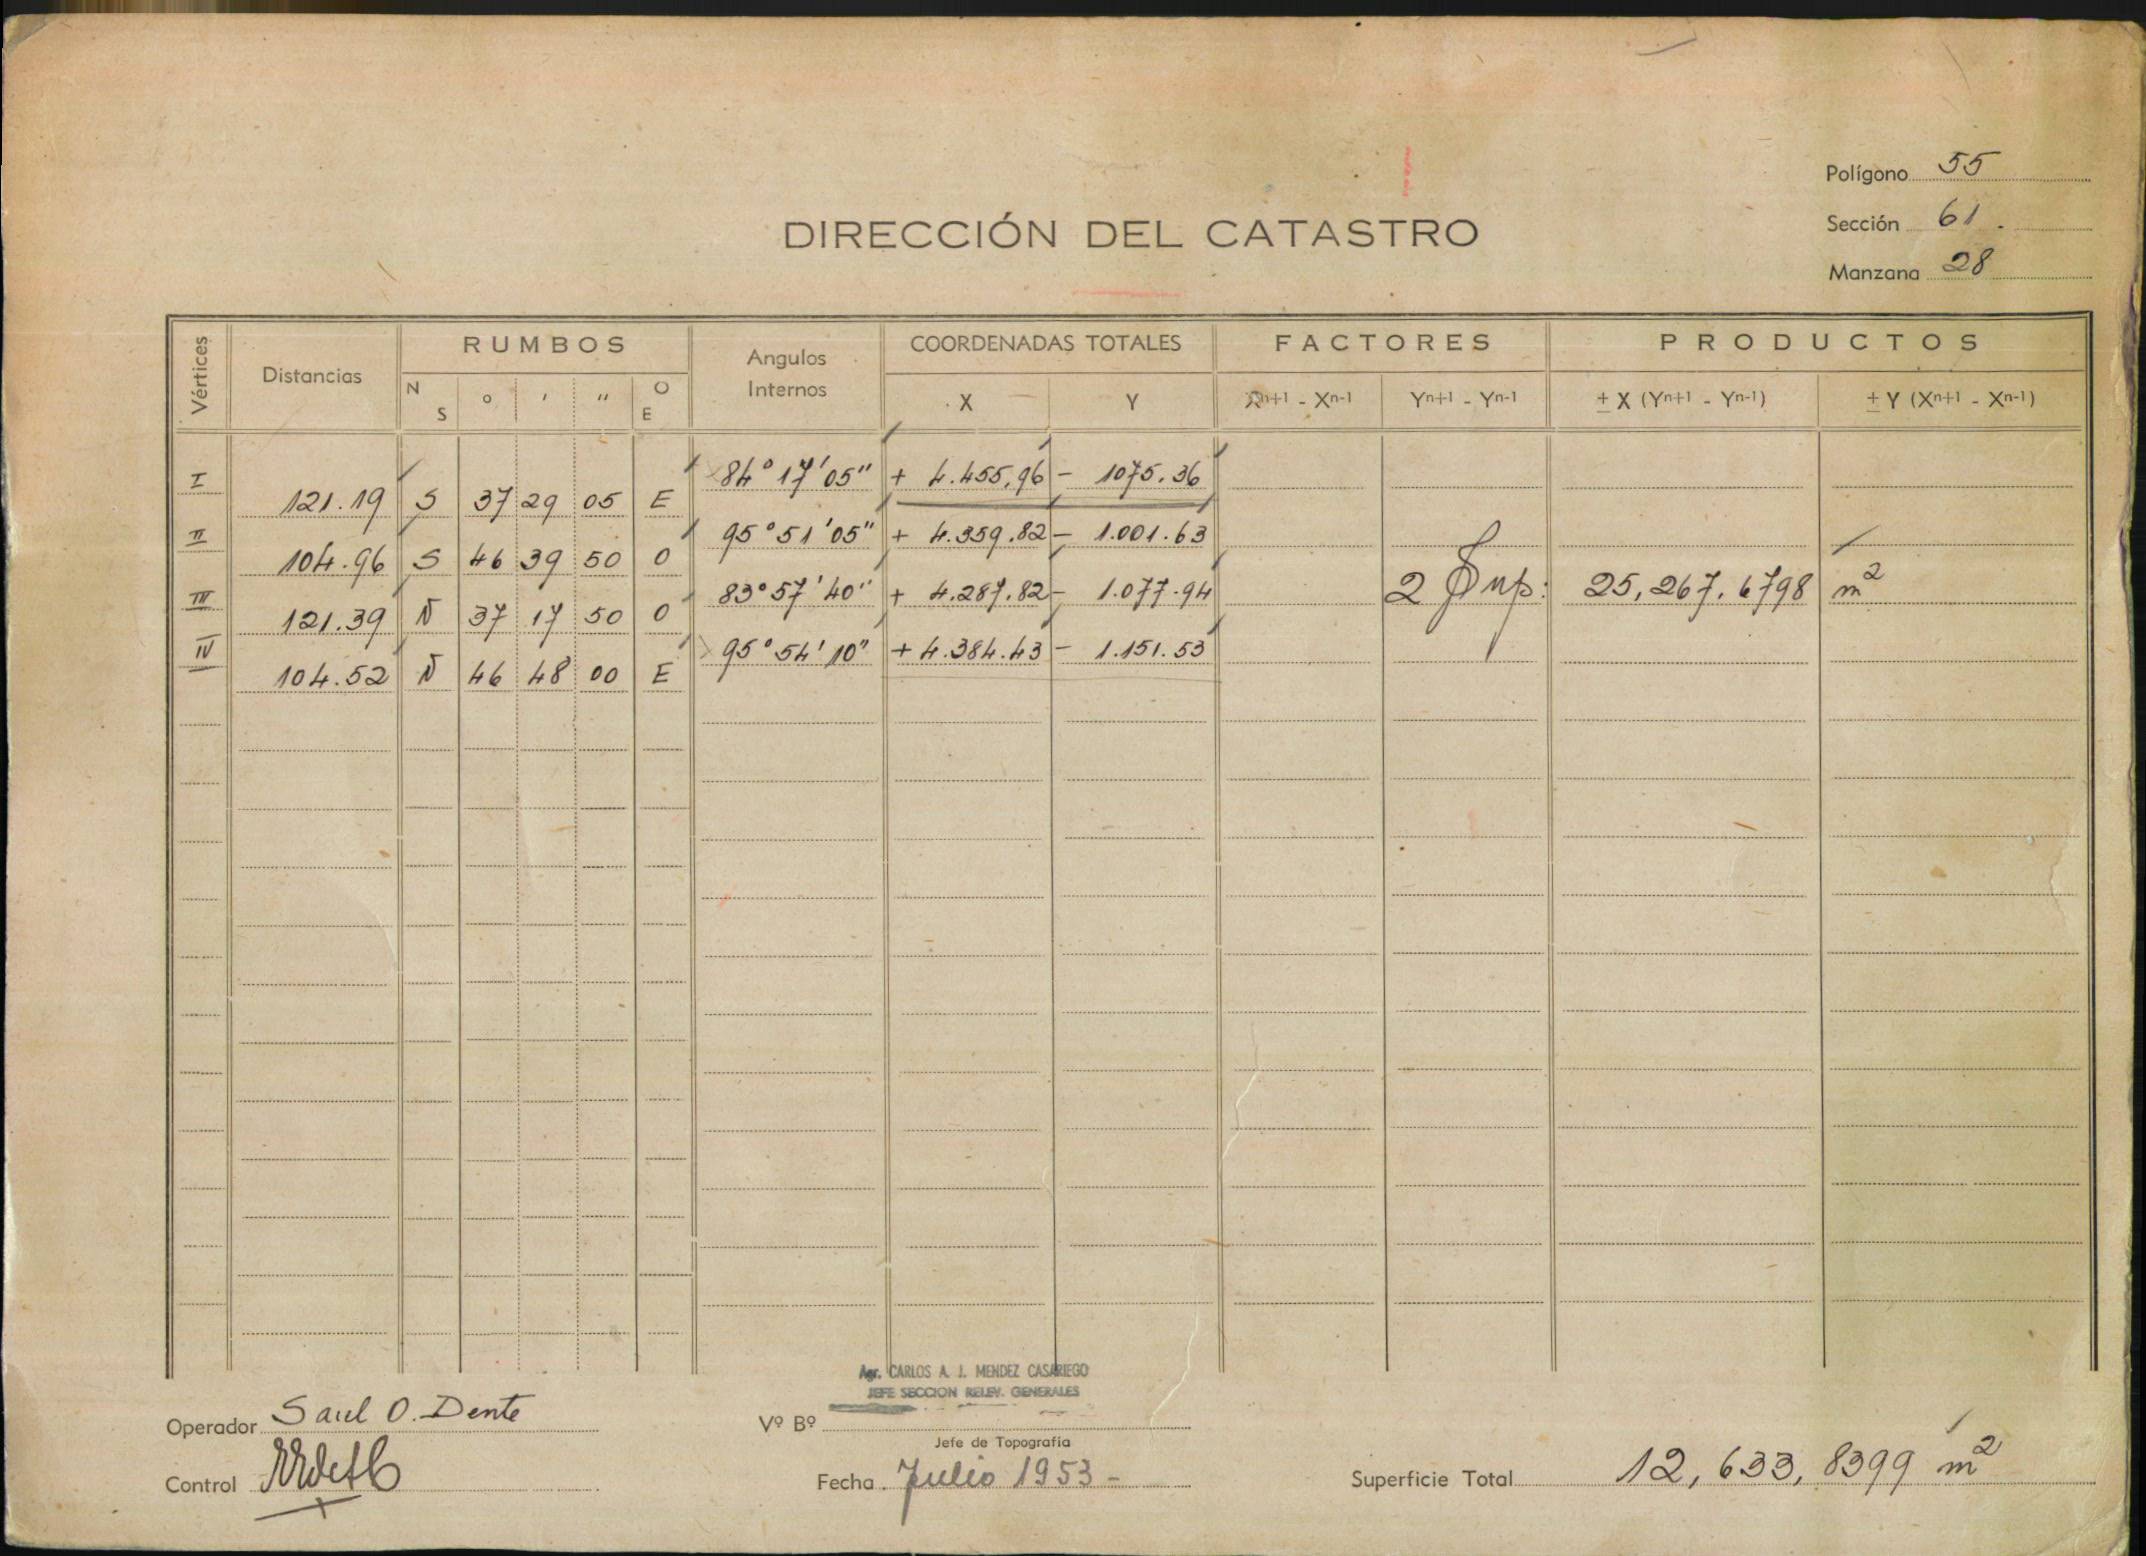 Polígono 55
DIRECCIÓN DEL CATASTRO
Sección 61.
Manzana 28
Vértices Distancias RUMBOS Angulos Internos COORDENADAS TOTALES FACTORES PRODUCTOS
N S ° ' " O E X Y Xn+1 - Xn-1 Yn+1 - Yn-1 ± X (Yn+1 - Yn-1) ± Y (Xn+1 - Xn-1)
I 84° 17' 05" + 4.455,96 - 1075.36
121.19 S 37 29 05 E
II 95° 51' 05" + 4.359.82 - 1.001.63
104.96 S 46 39 50 O
III 83° 57' 40" + 4.287.82 - 1.077.94 2 Sup: 25,267.6798 m2
121.39 N 37 17 50 O
IV 95° 54' 10" + 4.384.43 - 1.151.53
104.52 N 46 48 00 E
Agr. CARLOS A. J. MENDEZ CASARIEGO
JEFE SECCION RELEV. GENERALES
Operador Saul O. Dente
Vº Bº
Jefe de Topografía
Control
Fecha. Julio 1953 -
Superficie Total 12,633,8399 m2